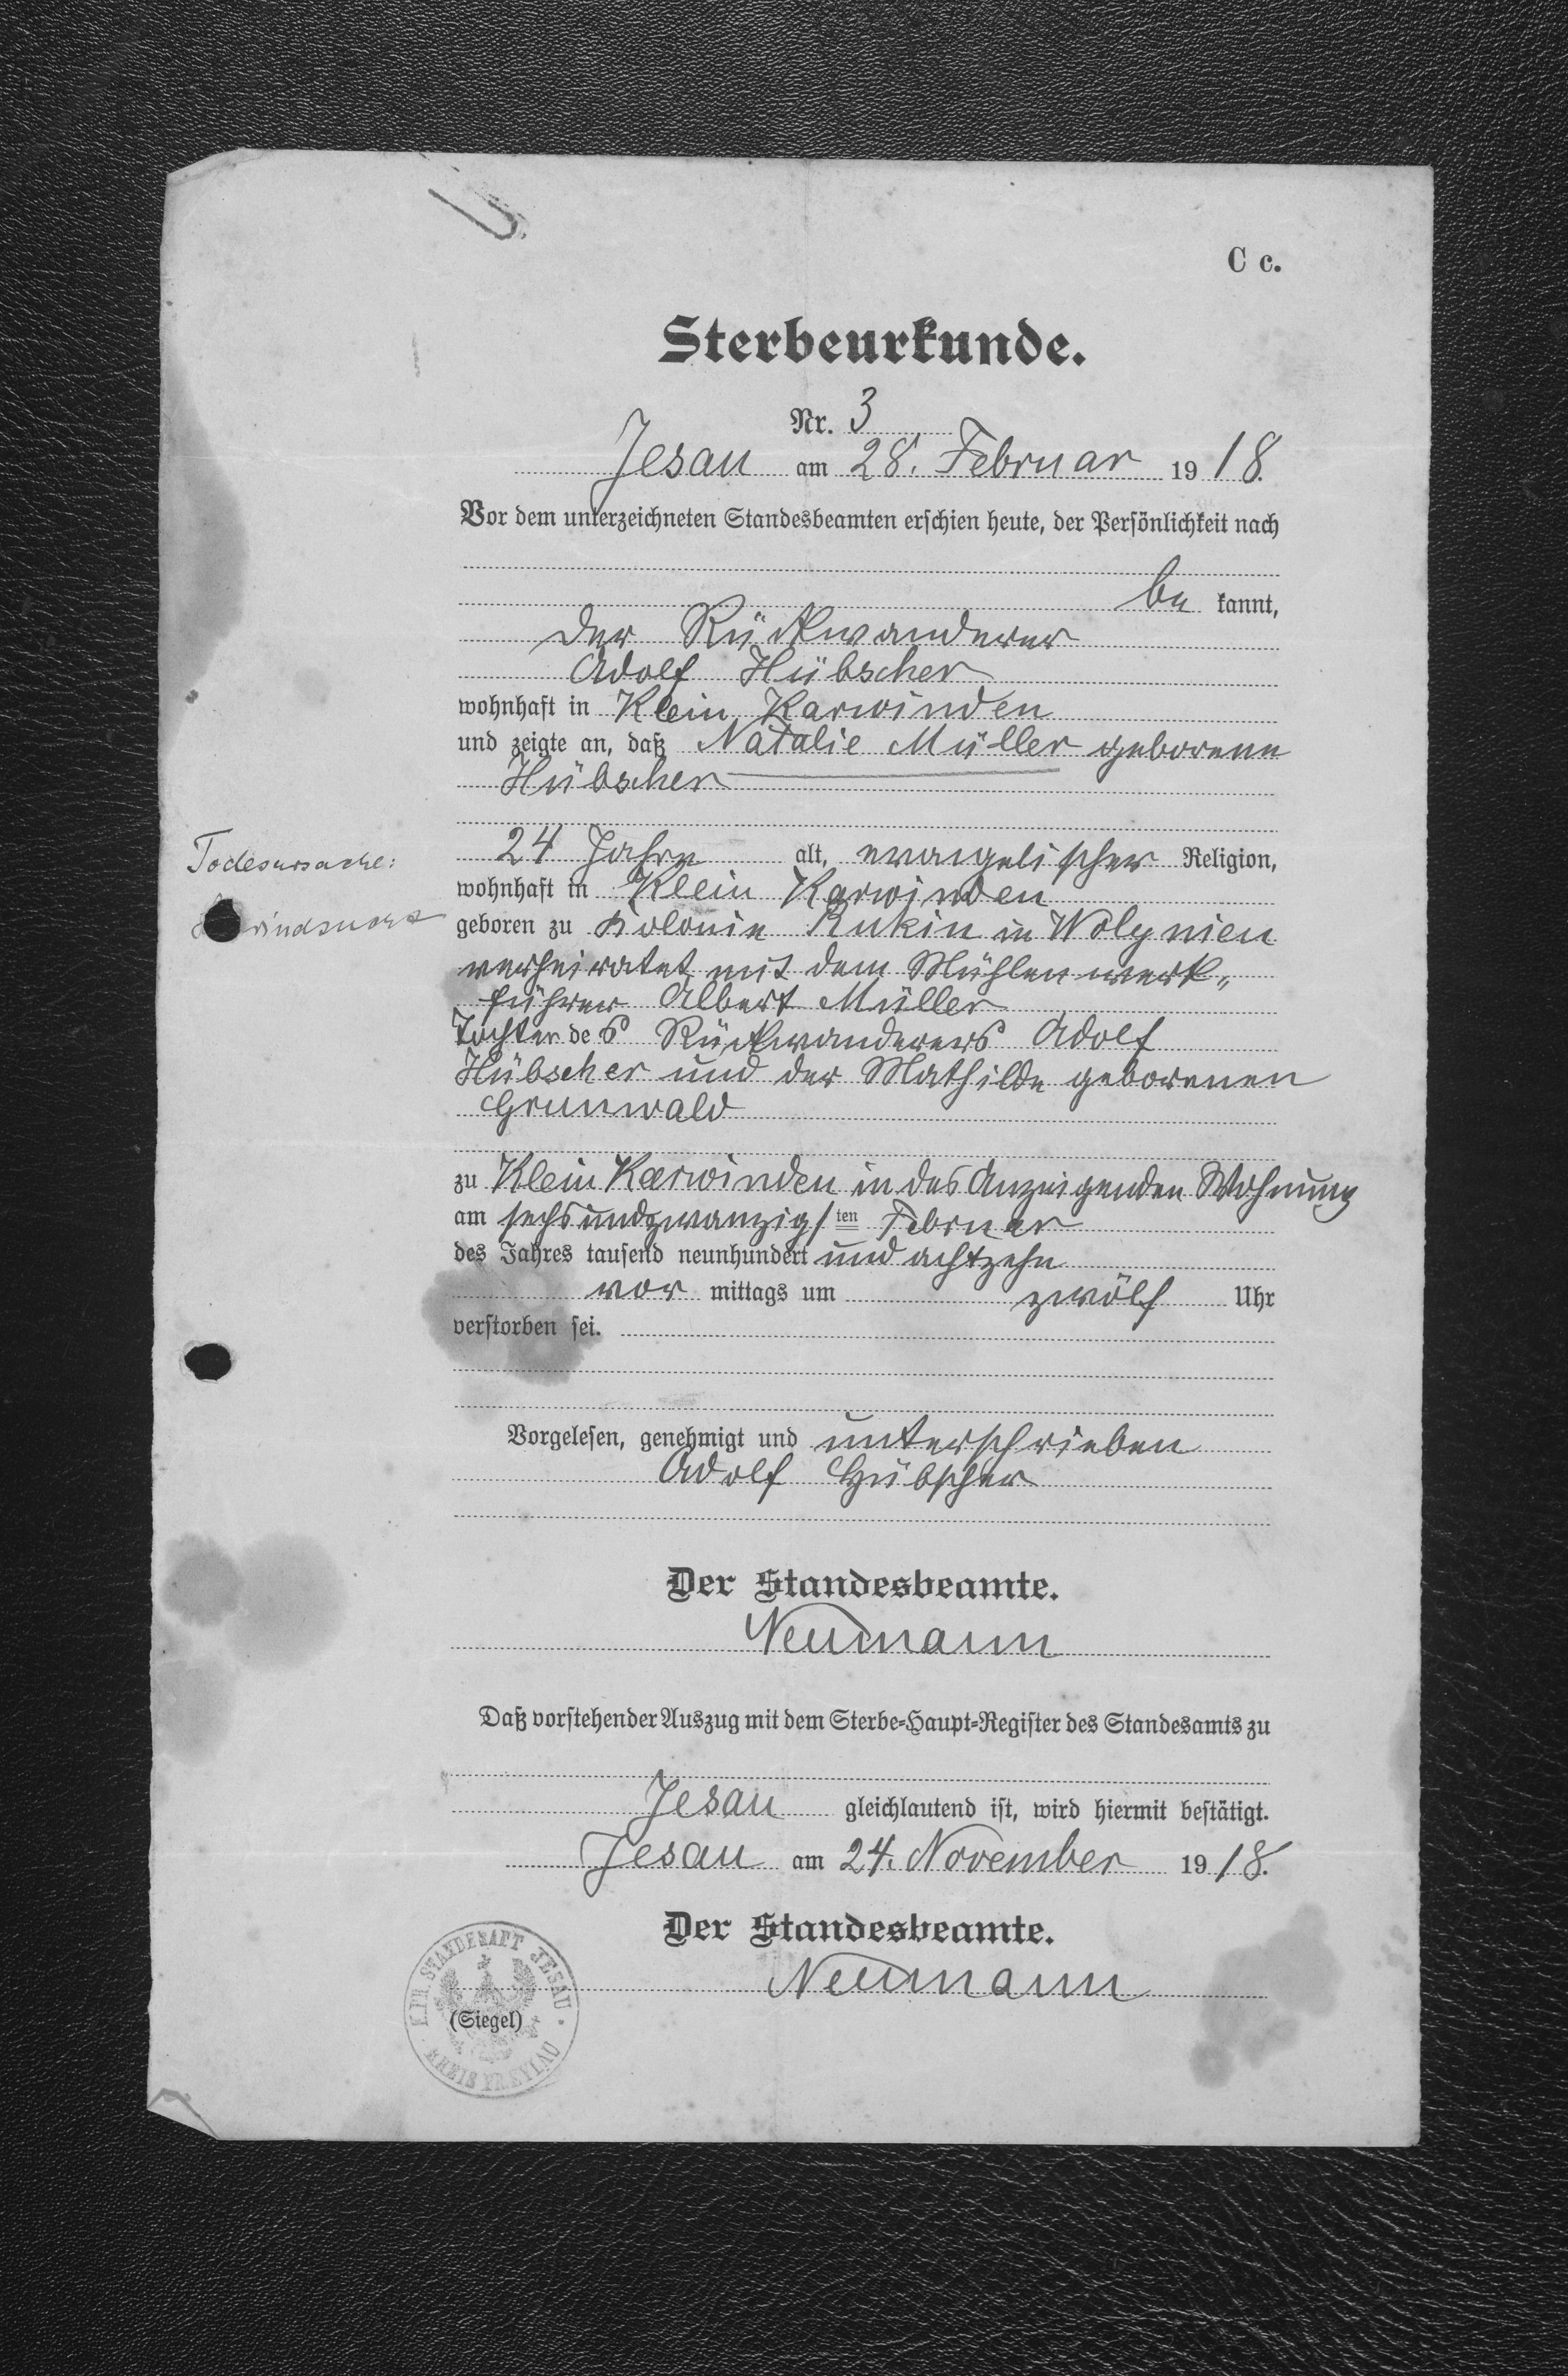 C c.
Sterbeurkunde.
Nr. 3
Jesau am 28. Februar 1918.
Vor dem unterzeichneten Standesbeamten erschien heute, der Persönlichkeit nach
be kannt,
der Rückwanderer
Adolf Hübscher
wohnhaft in Klein Karwinden
und zeigte an, daß Natalie Müller geborene
Hübscher
24 Jahre alt, evangelischer Religion,
Todesursache:
wohnhaft in Klein Karwinden
geboren zu Kolonie Rukin in Wolynien
verheiratet mit dem Mühlenwerk„
führer Albert Müller
Tochter des Rückwanderers Adolf
Hübscher und der Mathilde geborenen
Grunwald
zu Klein Karwinden in des Anzeigenden Wohnung
am sechsundzwanzigsten Februar
des Jahres tausend neunhundert und achtzehn
vor mittags um zwölf Uhr
verstorben sei.
Vorgelesen, genehmigt und unterschrieben
Adolf Hübscher
Der Standesbeamte.
Neumann
Daß vorstehender Auszug mit dem Sterbe-Haupt-Register des Standesamts zu
Jesau gleichlautend ist, wird hiermit bestätigt.
Jesau am 24. November 1918.
Der Standesbeamte.
Neumann
(Siegel)
STANDESAMT JESAU
KREIS PR. EYLAU